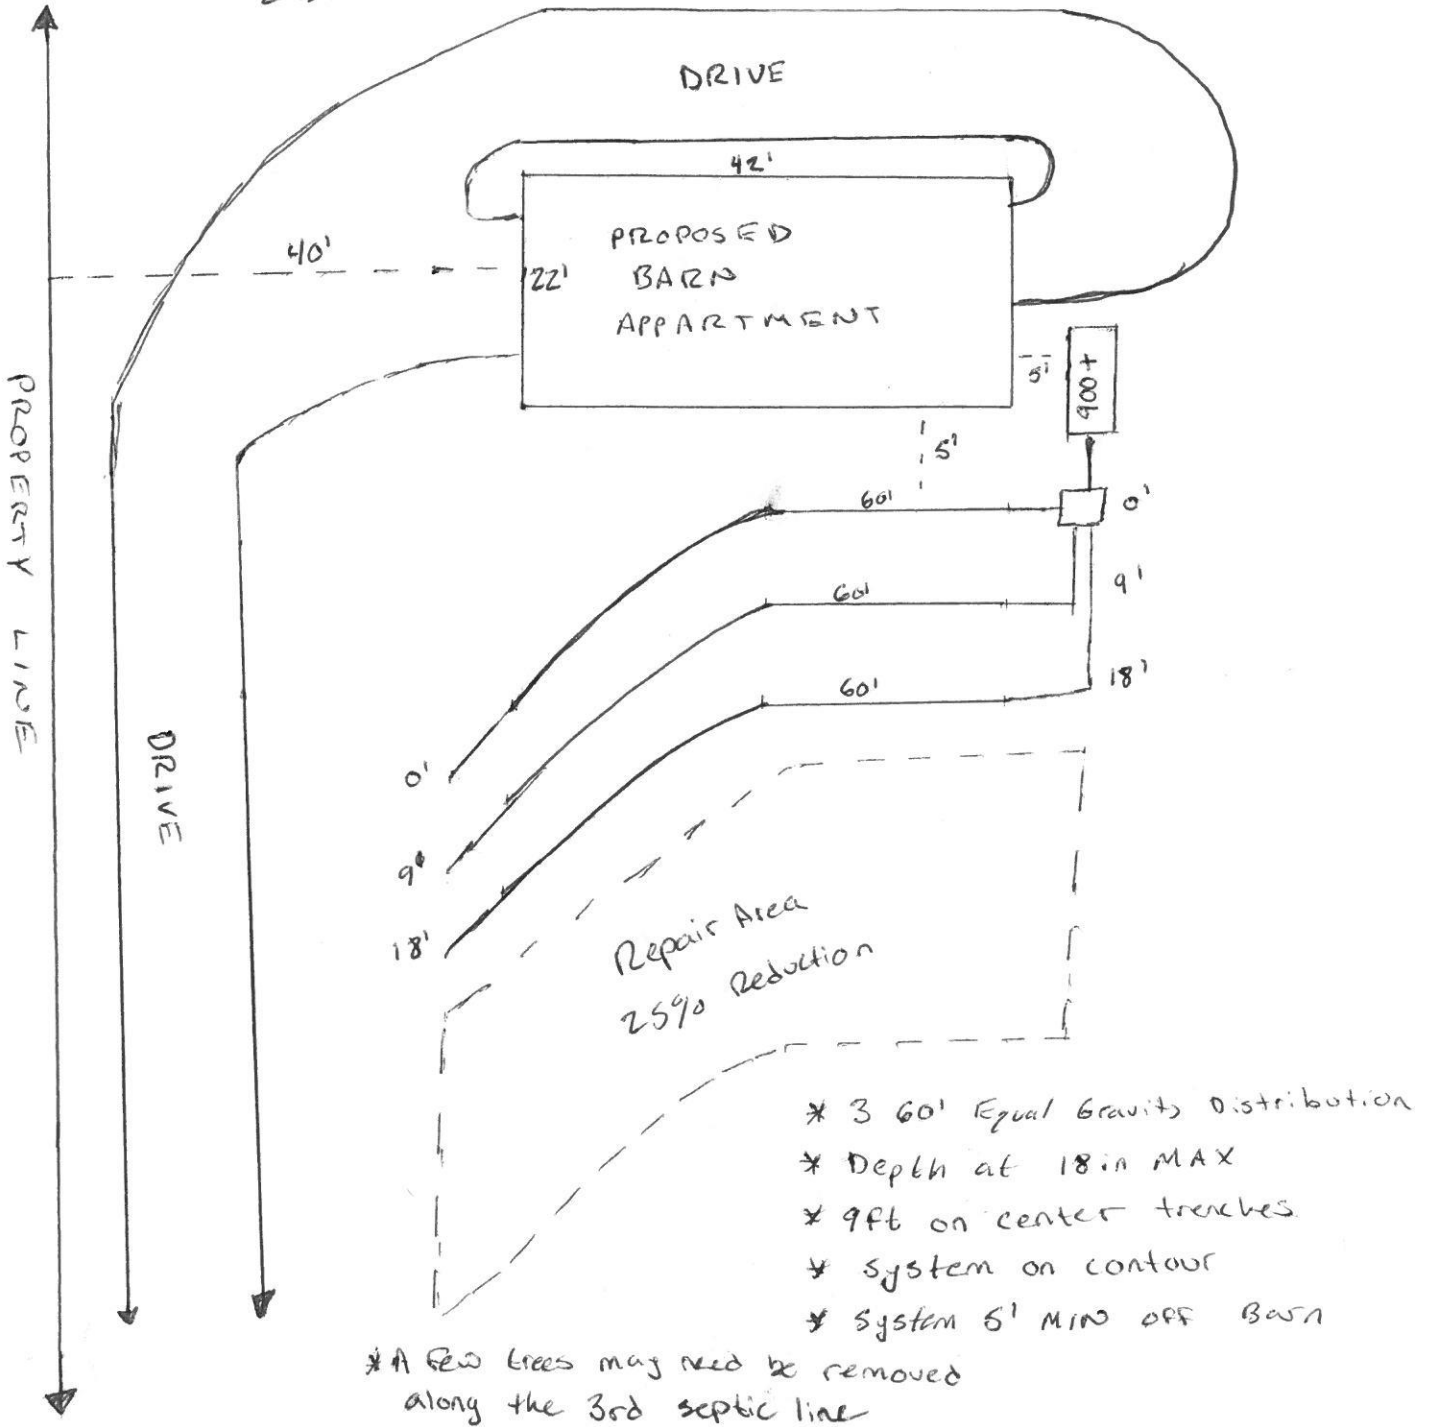 DRIVE
42'
PROPOSED
BARN
APPARTMENT
40'
22'
5'
900+
5'
PROPERTY LINE
60'
0'
60'
9'
60'
18'
DRIVE
0'
9'
18'
Repair Area
25% Reduction
* 3 60' Equal Gravity Distribution
* Depth at 18in MAX
* 9ft on center trenches
* System on contour
* System 5' MIN off Barn
* A Few trees may need be removed
along the 3rd septic line